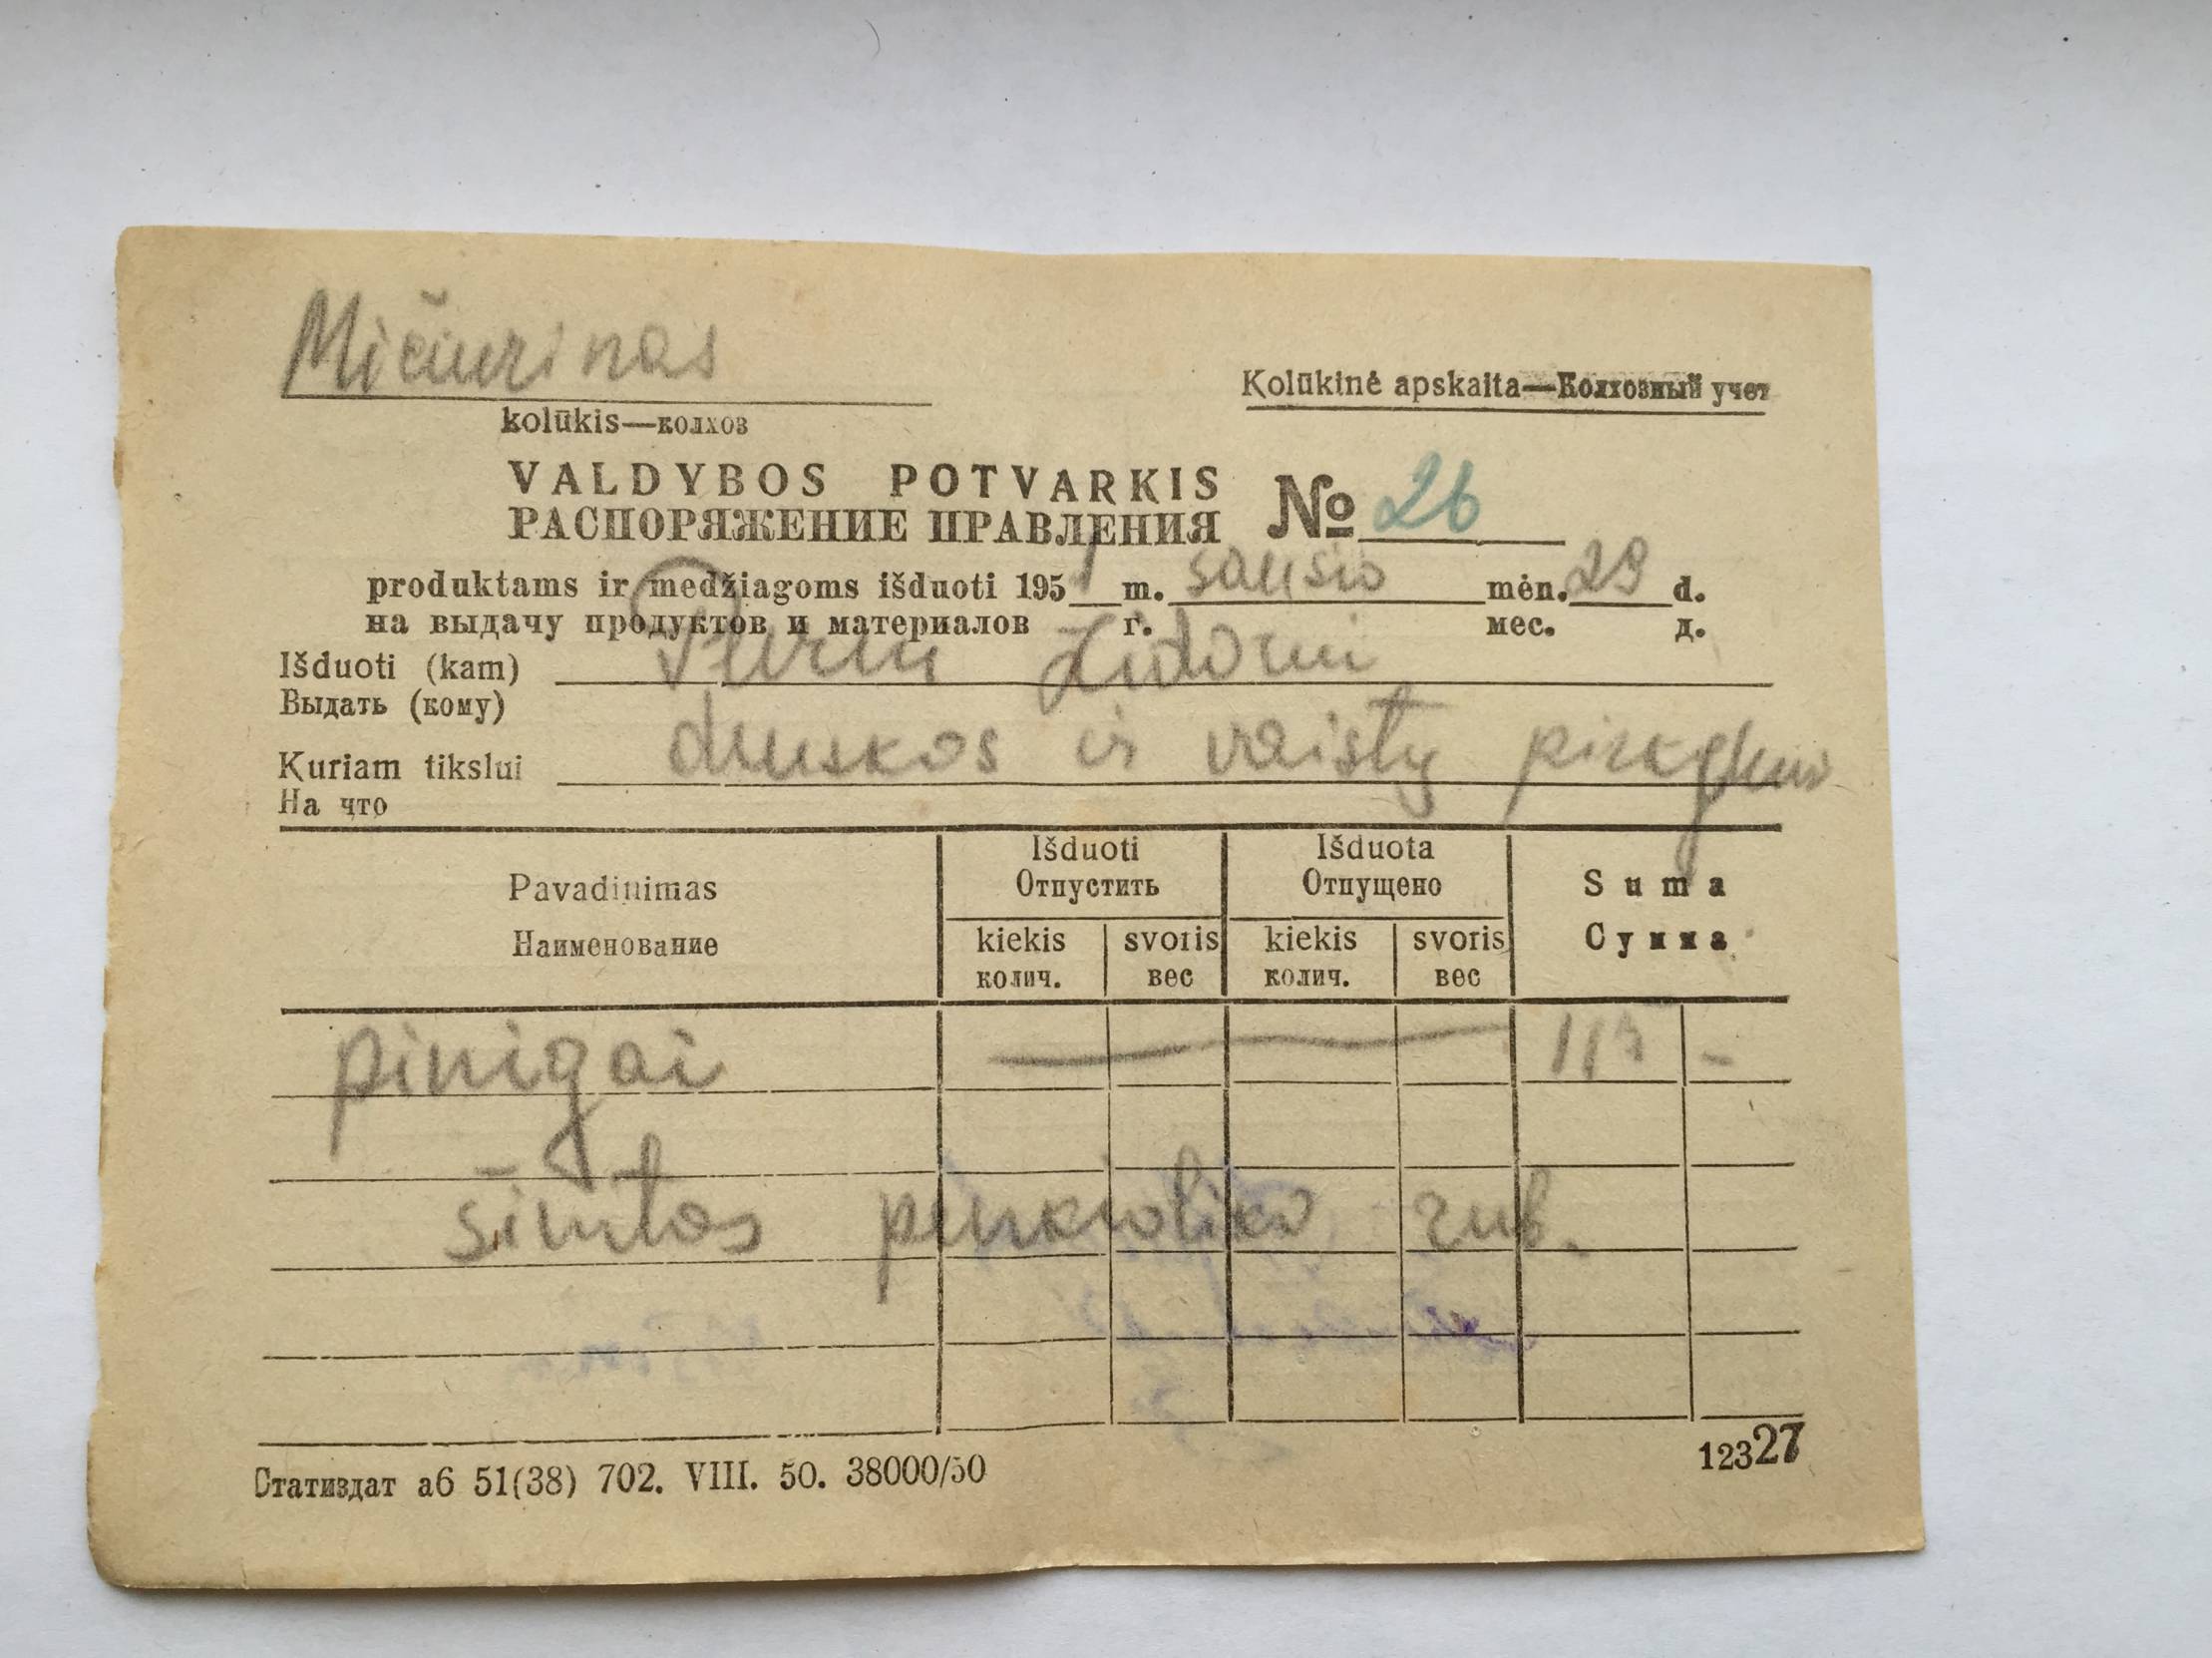 Mičiurinas
kolūkis—колхоз
Kolūkinė apskaita—Колхозный учет
VALDYBOS POTVARKIS
РАСПОРЯЖЕНИЕ ПРАВЛЕНИЯ № 26
produktams ir medžiagoms išduoti 1951 m. sausio mėn. 29 d.
на выдачу продуктов и материалов г. мес. д.
Išduoti (kam)
Выдать (кому)
Kuriam tikslui druskos ir vaistų
На что
Pavadinimas Išduoti Išduota Suma
Наименование Отпустить Отпущено Сумма
kiekis svoris kiekis svoris
колич. вес колич. вес
pinigai 115 –
šimtas penkiolika rub.
Статиздат аб 51(38) 702. VIII. 50. 38000/50
12327